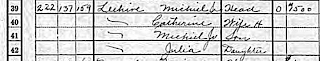 39 222 137 159 Leehive Michiel J Head O 7500
40 — Catherine Wife H
41 — Michiel J Son
42 — Julia Daughter